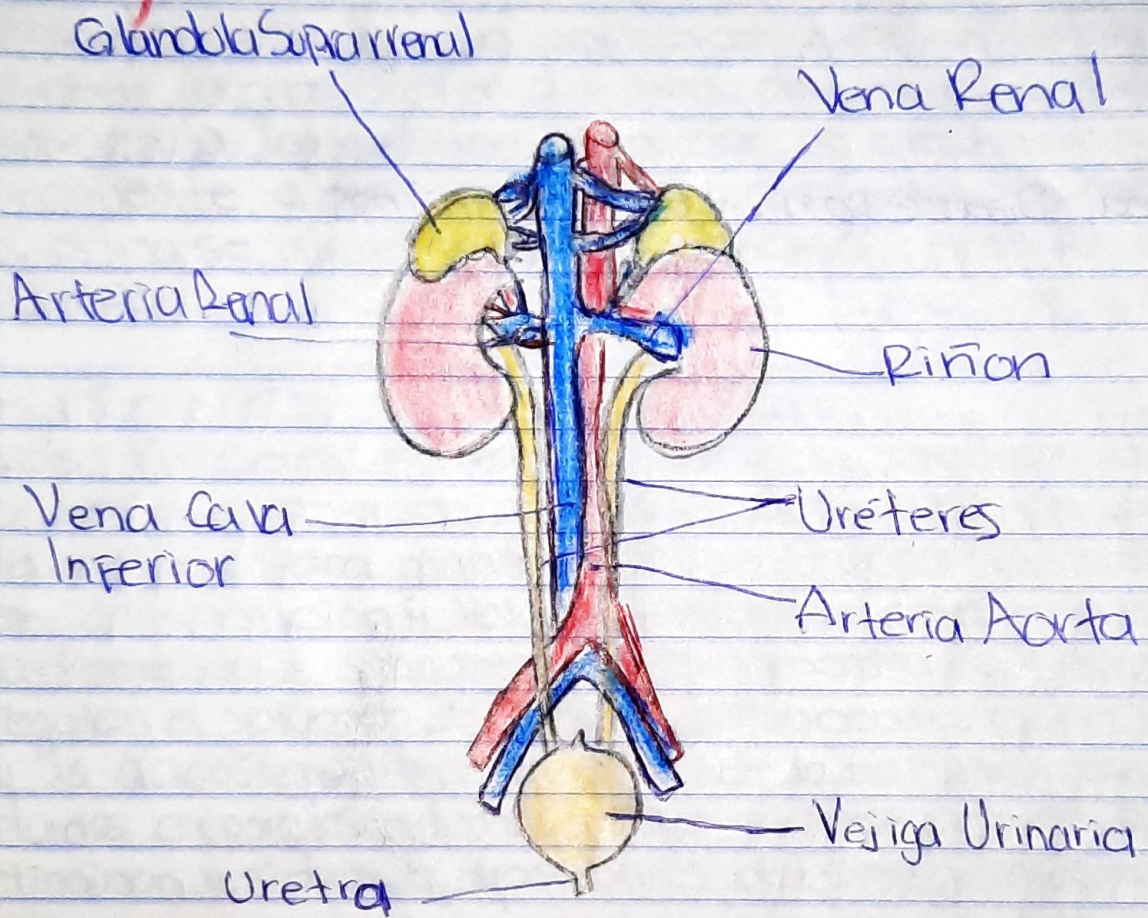 Glándula Suprarrenal
Vena Renal
Arteria Renal
Riñon
Vena Cava
Inferior
Uréteres
Arteria Aorta
Vejiga Urinaria
Uretra